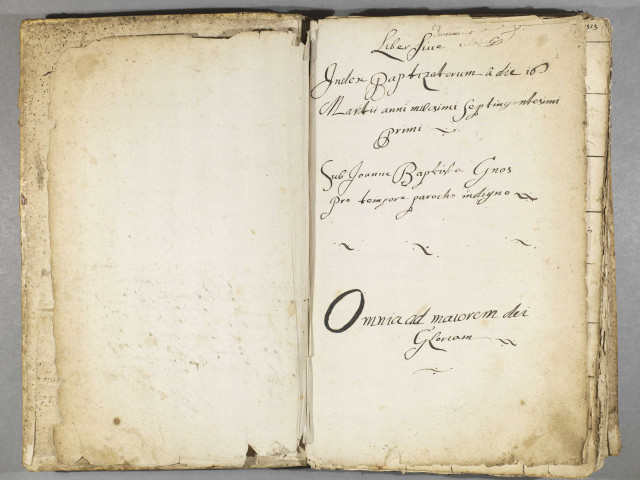 Liber Sive
Index Baptizatorum â die 16
Martii anni milesimi Septingentesimi
primi
Sub Joanne Baptista Gnos
pro tempore parocho indigno
Omnia ad maiorem dei
Gloriam